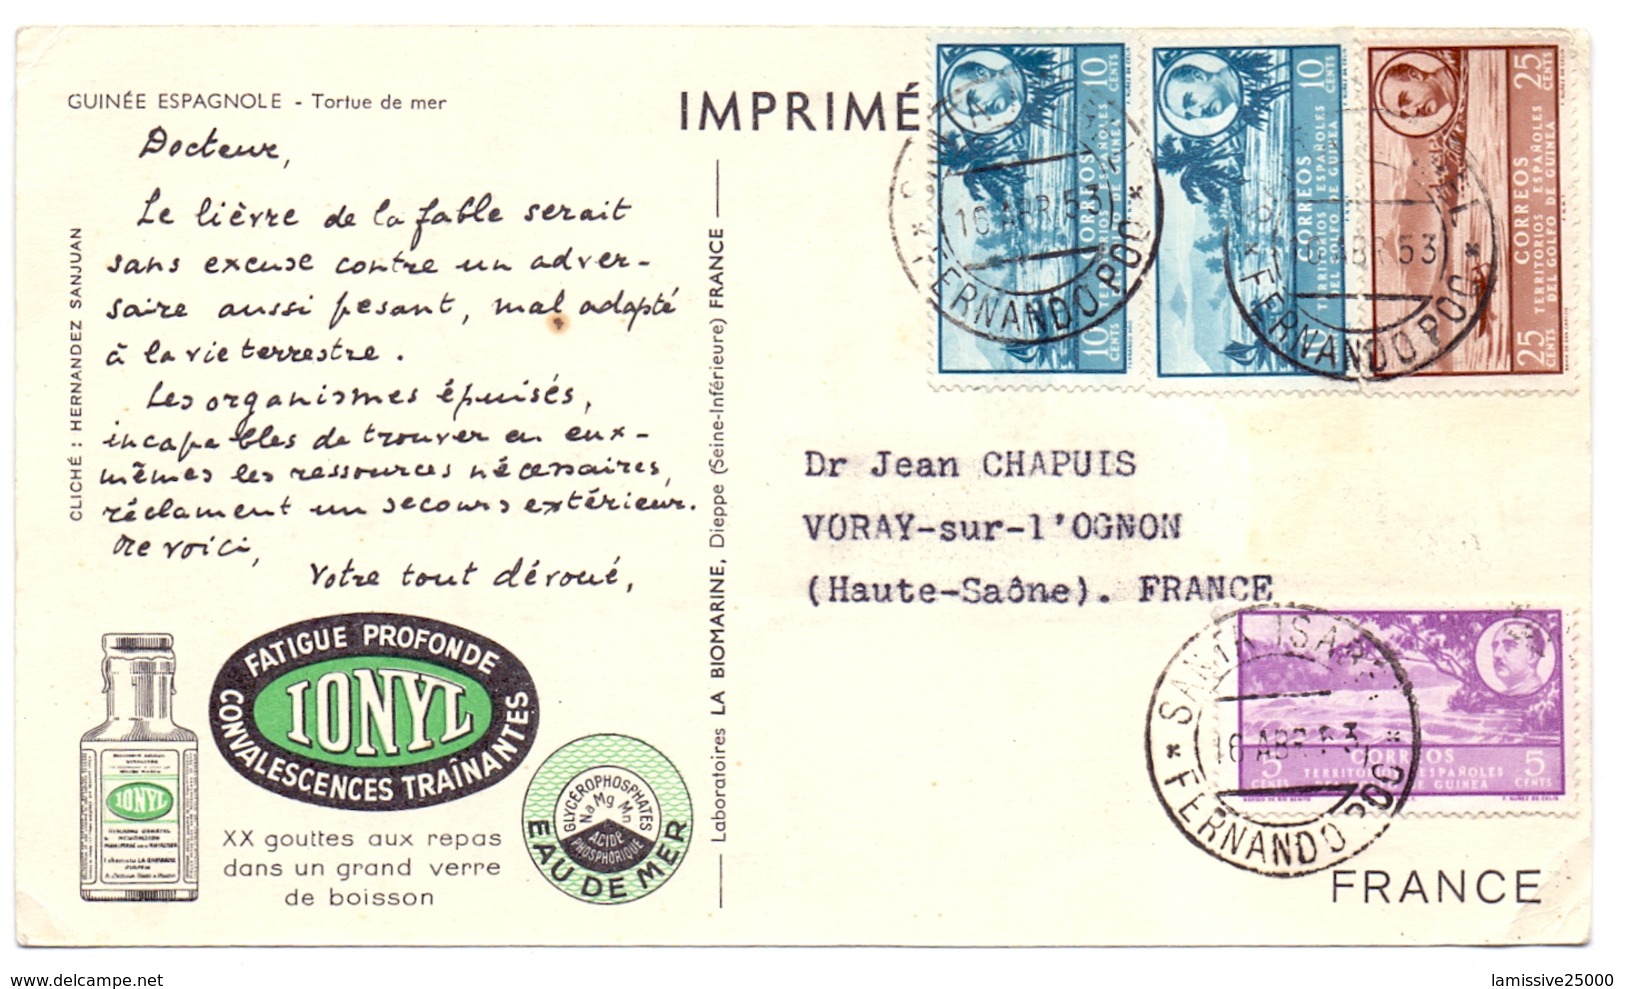 GUINÉE ESPAGNOLE - Tortue de mer
IMPRIMÉ
Docteur,
Le lièvre de la fable serait
sans excuse contre un adver-
saire aussi pesant, mal adapté
à la vie terrestre.
Les organismes épuisés,
incapables de trouver en eux-
mêmes les ressources nécessaires,
réclament un secours extérieur.
Le voici,
Votre tout dévoué,
CLICHÉ : HERNANDEZ SANJUAN
FATIGUE PROFONDE
IONYL
CONVALESCENCES TRAÎNANTES
IONYL
XX gouttes aux repas
dans un grand verre
de boisson
GLYCÉROPHOSPHATES
Na Mg Mn
ACIDE
PHOSPHORIQUE
EAU DE MER
Laboratoires LA BIOMARINE, Dieppe (Seine-Inférieure) FRANCE
10 CENTS
CORREOS
TERRITORIOS ESPAÑOLES
10 CENTS
10 CENTS
CORREOS
TERRITORIOS ESPAÑOLES
DEL GOLFO DE GUINEA
25 CENTS
CORREOS
TERRITORIOS ESPAÑOLES
DEL GOLFO DE GUINEA
25 CENTS
16 ABR 53
FERNANDO POO
16 ABR 53
FERNANDO POO
Dr Jean CHAPUIS
VORAY-sur-l'OGNON
(Haute-Saône). FRANCE
SANTA ISABEL
16 ABR 53
FERNANDO POO
5 CENTS
CORREOS
TERRITORIOS ESPAÑOLES
DE GUINEA
5 CENTS
FRANCE
delcampe.net
lamissive25000